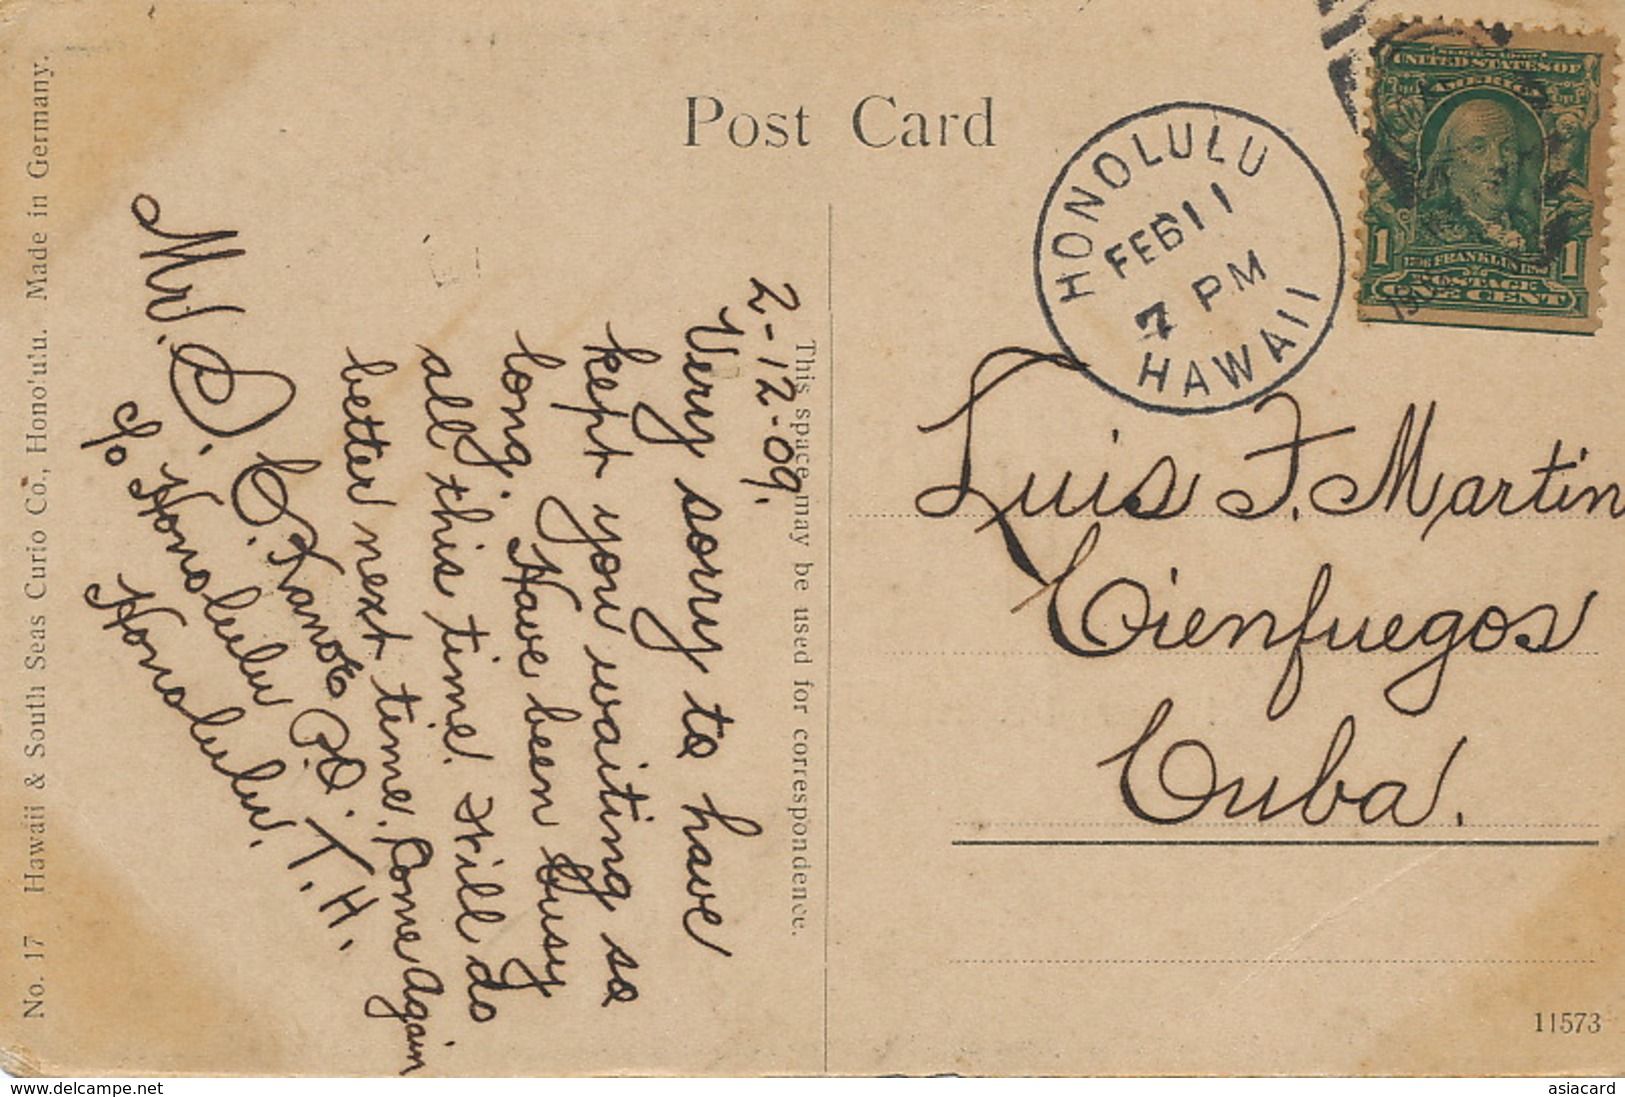 Post Card
HONOLULU
FEB 11
7 PM
HAWAII
UNITED STATES OF
AMERICA
1 FRANKLIN 1
POSTAGE
ONE CENT
Luis F. Martin
Cienfuegos
Cuba.
11573
This space may be used for correspondence.
2-12-09.
Very sorry to have
kept you waiting so
long. Have been busy
all this time. Will do
better next time. Come again
Mr. S. C. Kanoe
c/o Honolulu P.O.
Honolulu. T.H.
No. 17 Hawaii & South Seas Curio Co., Hono'u'u. Made in Germany.
www.delcampe.net
asiacard